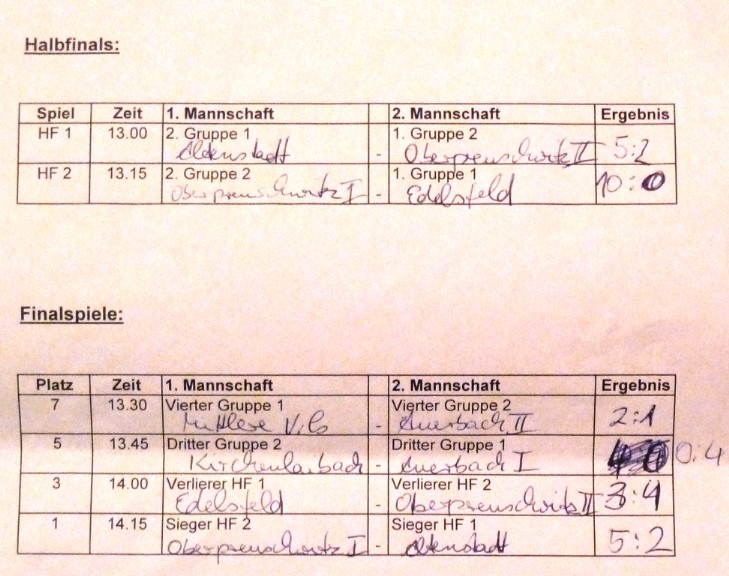 Halbfinals:
Spiel Zeit 1. Mannschaft 2. Mannschaft Ergebnis
HF 1 13.00 2. Gruppe 1 1. Gruppe 2
Altenstadt - Oberpreuschwitz II 5:2
HF 2 13.15 2. Gruppe 2 1. Gruppe 1
Oberpreuschwitz I - Edelsfeld 10:0
Finalspiele:
Platz Zeit 1. Mannschaft 2. Mannschaft Ergebnis
7 13.30 Vierter Gruppe 1 Vierter Gruppe 2
Mittlere Vils - Auerbach II 2:1
5 13.45 Dritter Gruppe 2 Dritter Gruppe 1
Kirchenlaibach - Auerbach I 0:4
3 14.00 Verlierer HF 1 Verlierer HF 2
Edelsfeld - Oberpreuschwitz II 3:4
1 14.15 Sieger HF 2 Sieger HF 1
Oberpreuschwitz I - Altenstadt 5:2